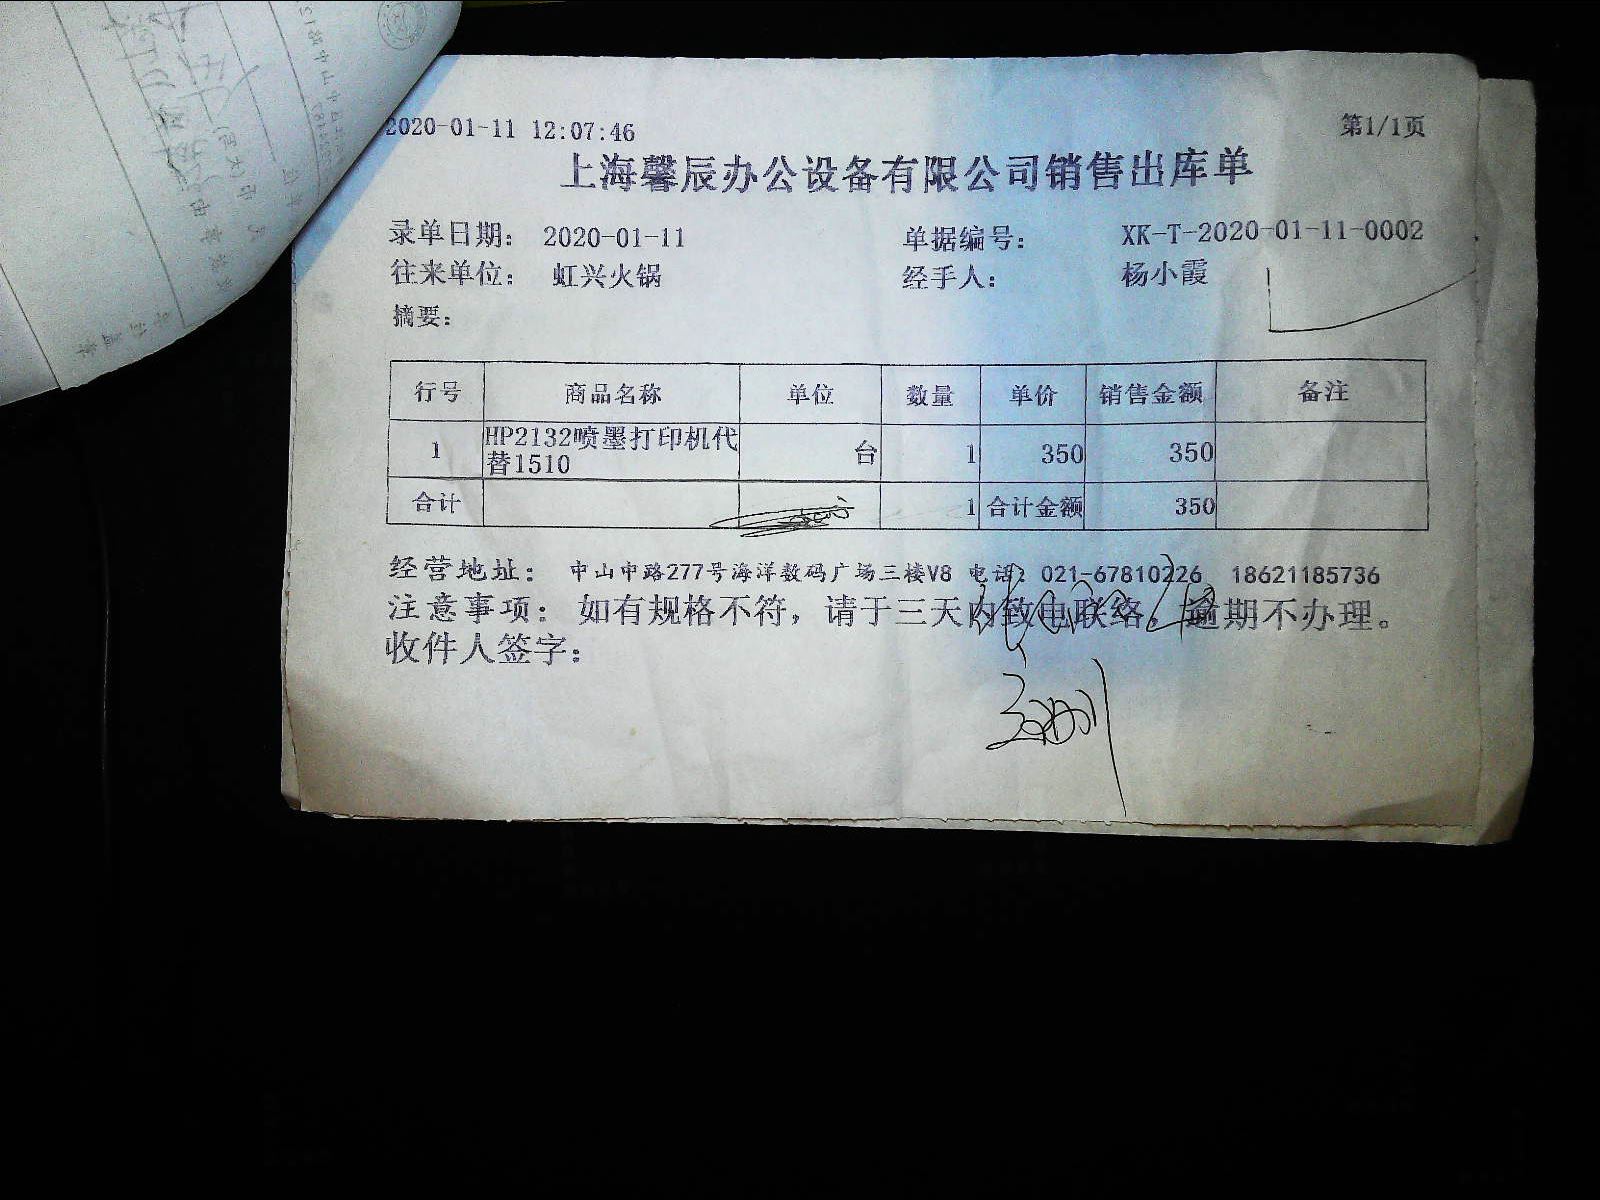 2020-01-11 12:07:46 第1/1页
上海馨辰办公设备有限公司销售出库单
录单日期: 2020-01-11 单据编号: XK-T-2020-01-11-0002
往来单位: 虹兴火锅 经手人: 杨小霞
摘要:
行号 商品名称 单位 数量 单价 销售金额 备注
1 HP2132喷墨打印机代替1510 台 1 350 350
合计 1 合计金额 350
经营地址: 中山中路277号海洋数码广场三楼V8 电话: 021-67810226 18621185736
注意事项: 如有规格不符, 请于三天内致电联络, 逾期不办理。
收件人签字: